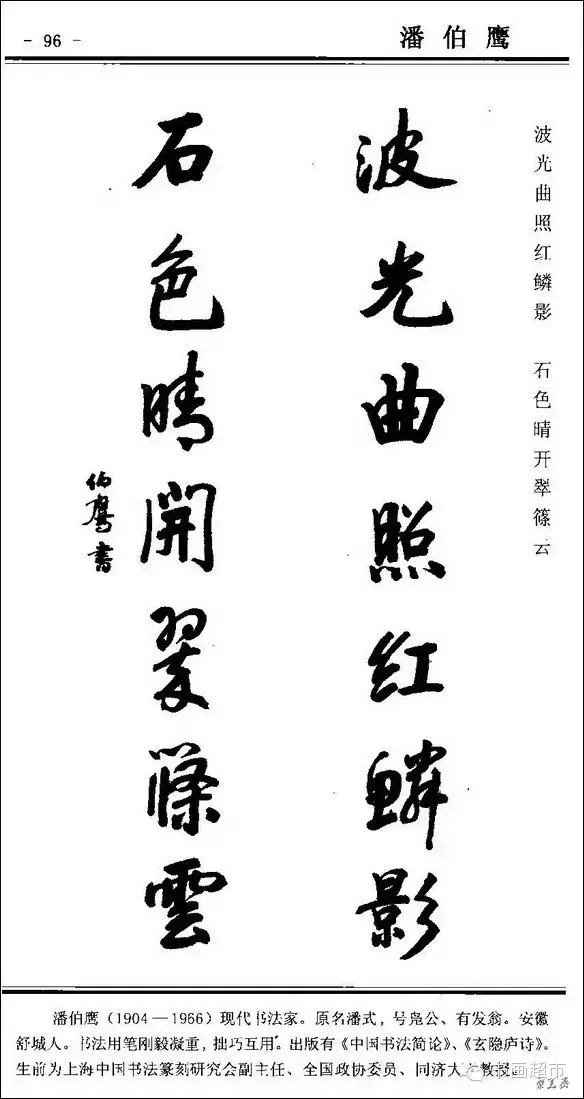 - 96 -
潘伯鹰
波光曲照红鳞影 石色晴开翠篠云
波光曲照红鳞影
石色晴開翠篠雲
伯鹰書
潘伯鹰（1904—1966）现代书法家。原名潘式，号凫公、有发翁。安徽
舒城人。书法用笔刚毅凝重，拙巧互用。出版有《中国书法简论》、《玄隐庐诗》。
生前为上海中国书法篆刻研究会副主任、全国政协委员、同济大 教授。
书画超市